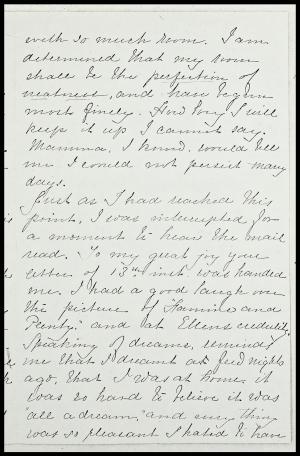 with so much room. I am
determined that my room
shall be the perfection of
neatness, and have begun
most finely. How long I will
keep it up I cannot say.
Mamma, I know, would tell
me I could not persist many
days.
Just as I had reached this
point, I was interrupted for
a moment to hear the mail
read. To my great joy your
letter of 13th inst. was handed
me. I had a good laugh over
the picture of "Famine and
Plenty" and at Ellens credulity.
Speaking of dreams, reminds
me that I dreamt a few nights
ago, that I was at home, it
was so hard to believe it was
"all a dream," and every thing
was so pleasant I hated to have